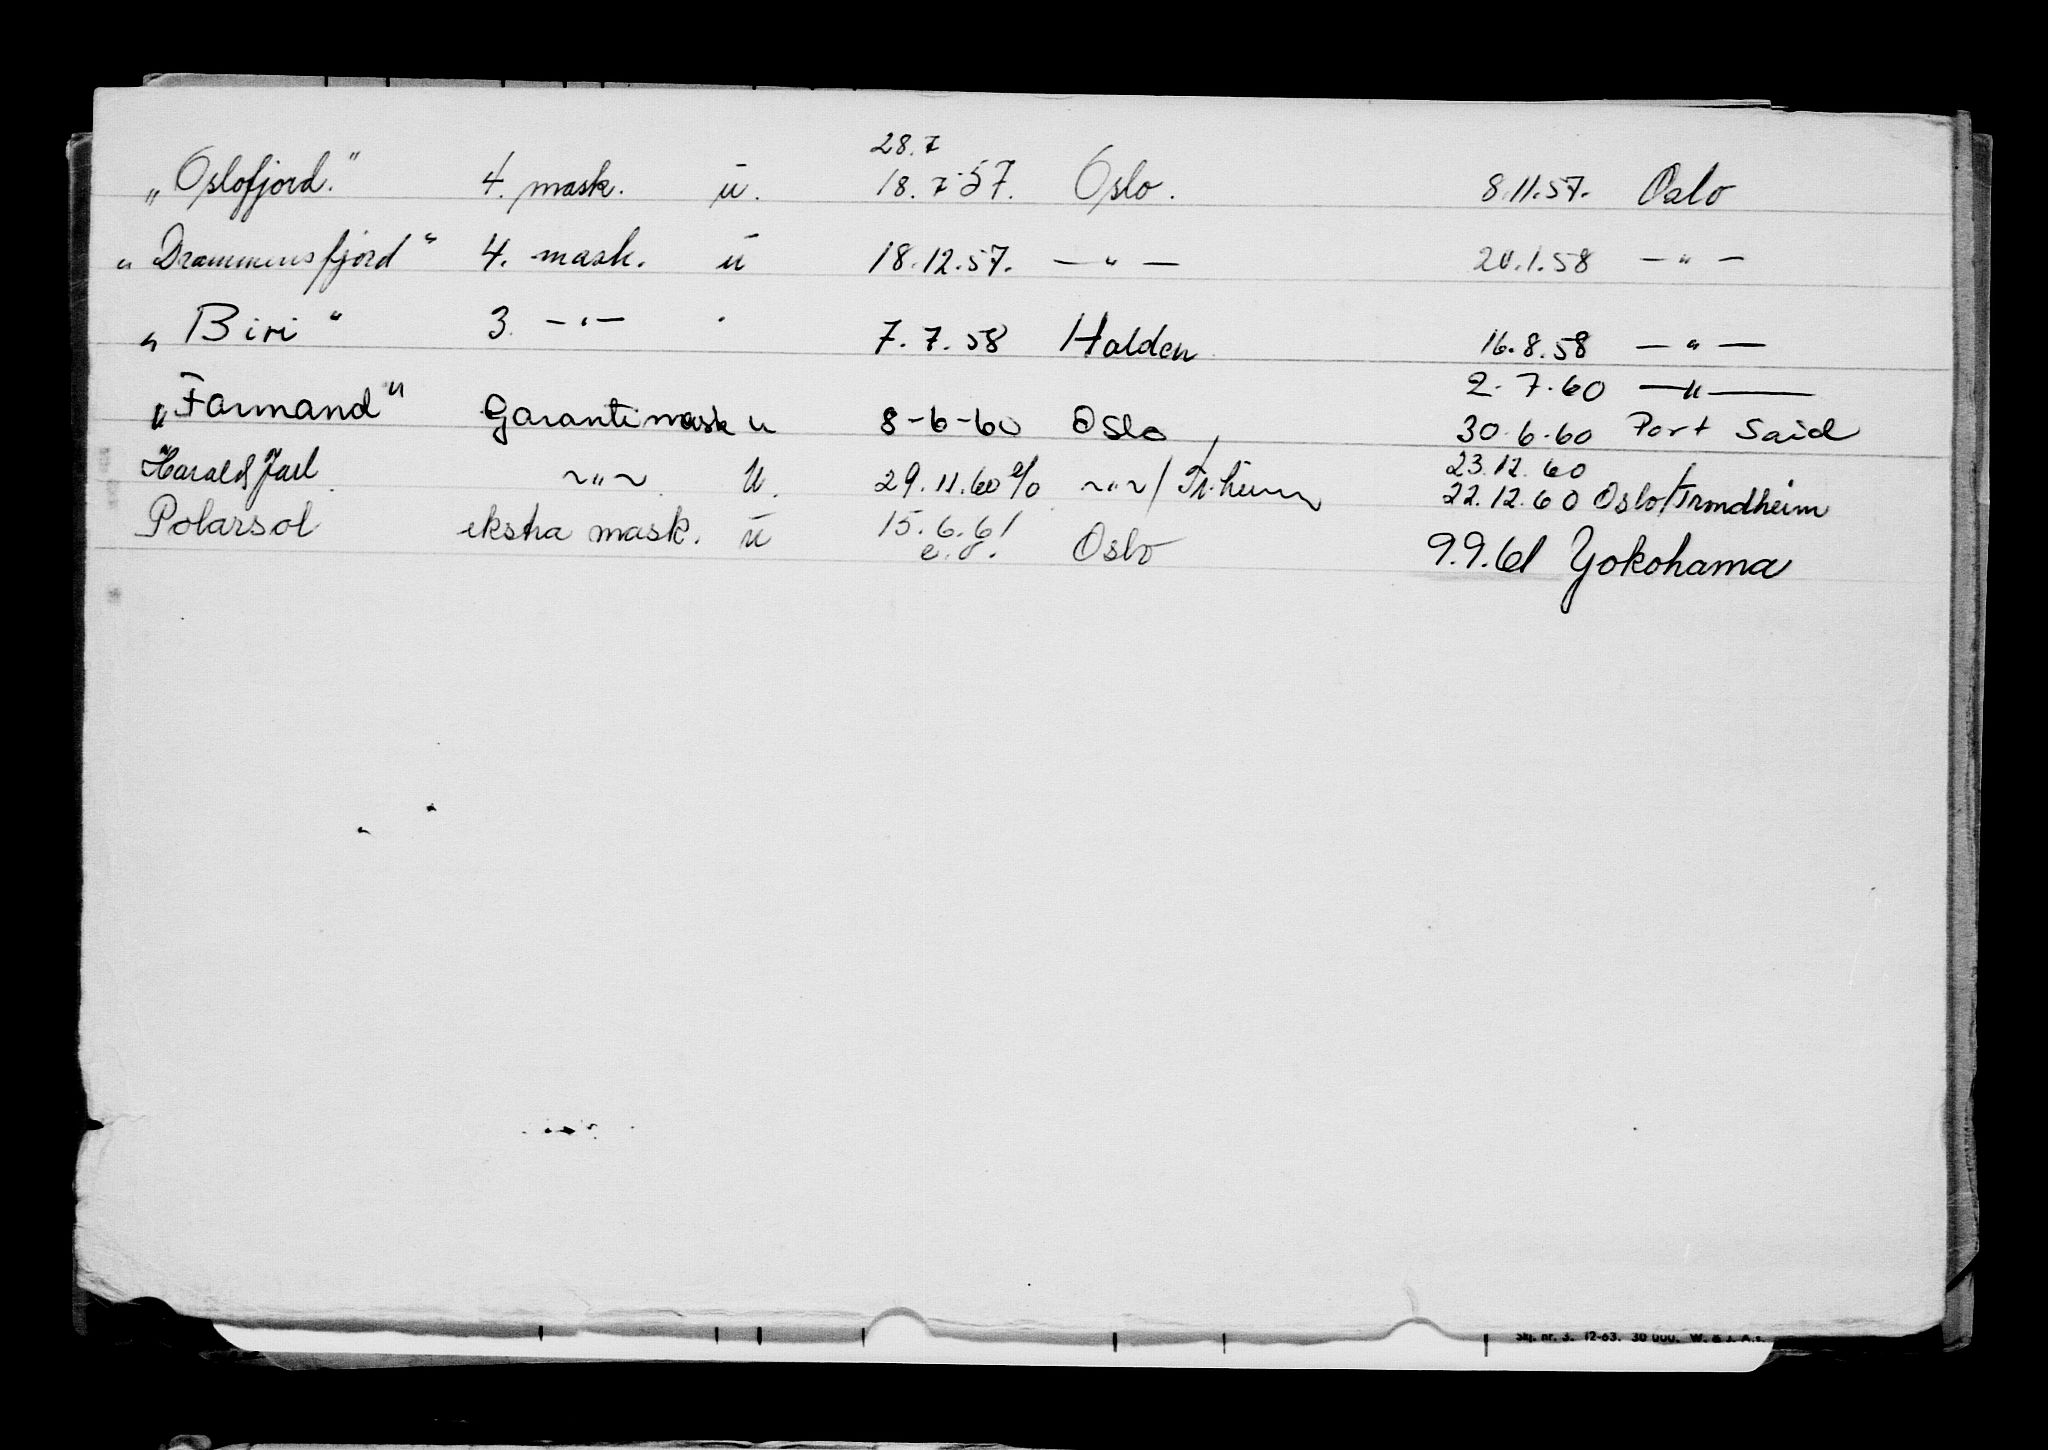 28.7
„Oslofjord." 4. mask. ū. 18.7.57. Oslo. 8.11.57. Oslo
„Drammensfjord" 4. mask. ū 18.12.57. — " — 20.1.58 — " —
„Biri" 3. — " — 7.7.58 Halden 16.8.58 — " —
2.7.60 — " —
„Farmand" Garantimask u 8-6-60 Oslo, 30.6.60 Port Said
23.12.60
Harald Jarl ~ " ~ U. 29.11.60 e/o ~ " ~ / Tr.heim 22.12.60 Oslo/Trondheim
Polarsol ekstra mask. ū 15.6.61 Oslo 9.9.61 Yokohama
e.o.
Skj. nr. 3. 12-63. 30 000. W. & J. A.s.